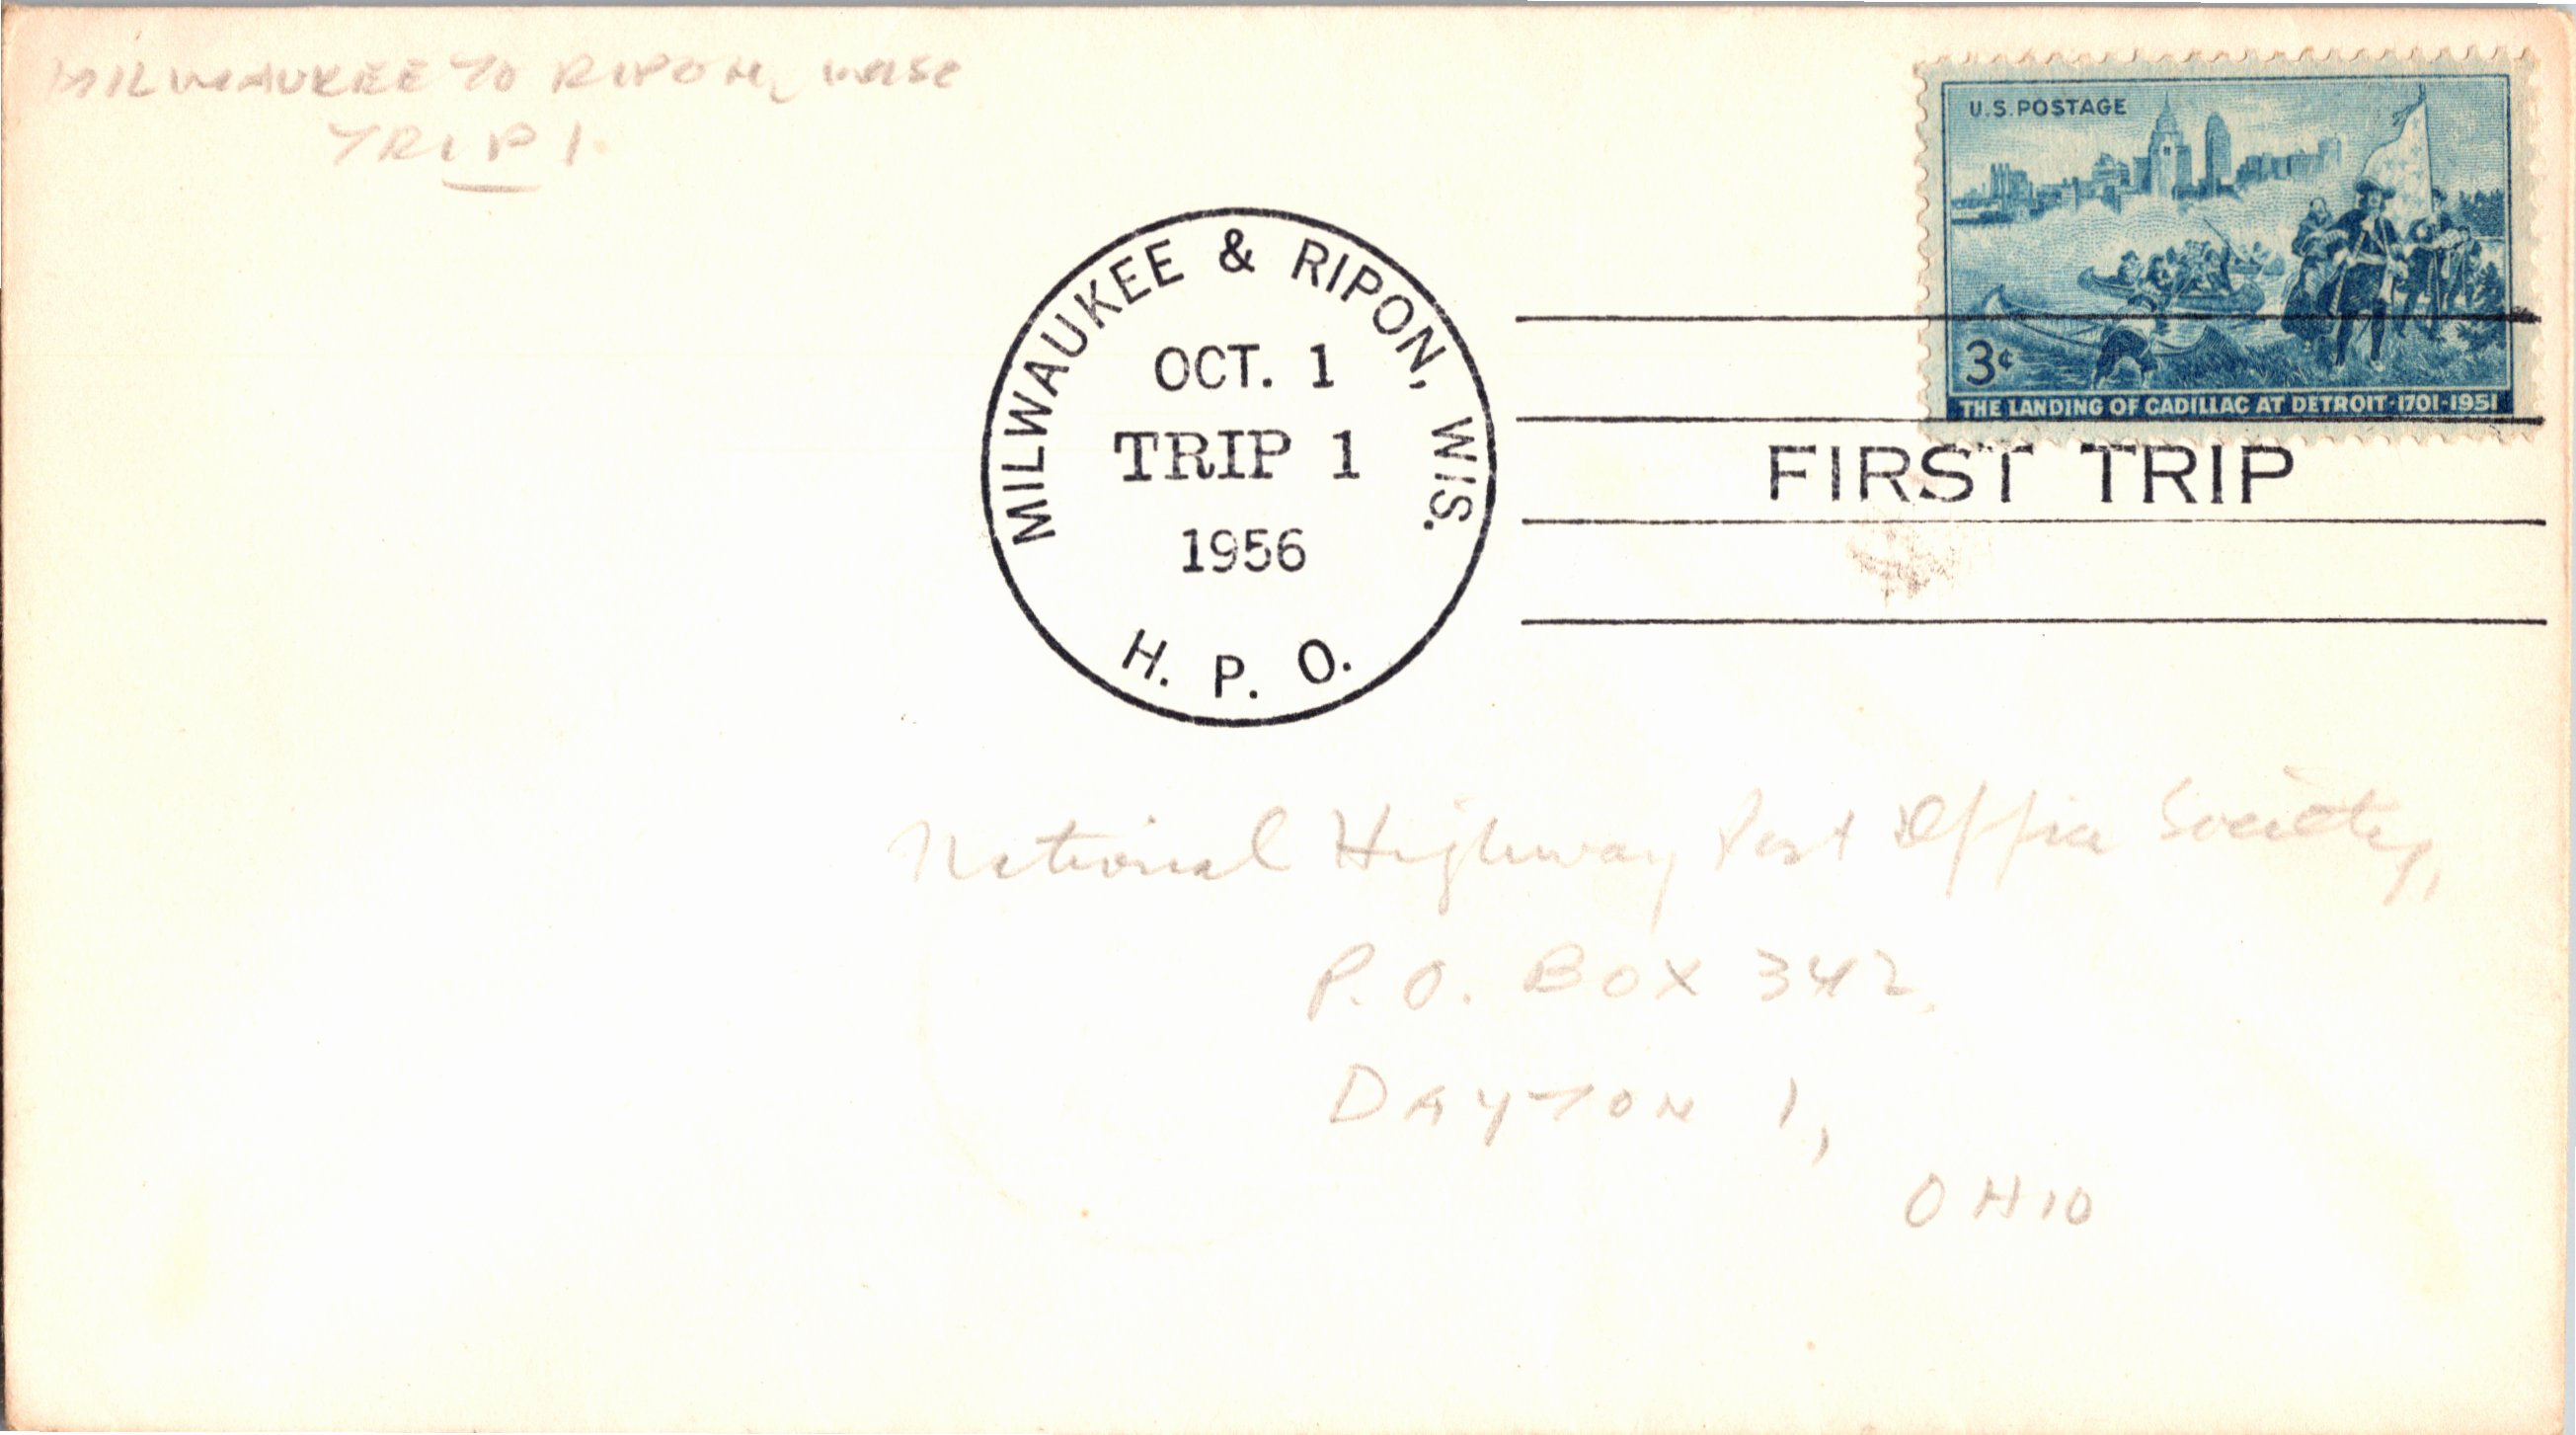 MILWAUKEE TO RIPON, WISC
TRIP 1
U.S. POSTAGE
3¢
THE LANDING OF CADILLAC AT DETROIT-1701-1951
MILWAUKEE & RIPON, WIS.
OCT. 1
TRIP 1
1956
H. P. O.
FIRST TRIP
National Highway Post Office Society,
P. O. BOX 342
DAYTON 1,
OHIO